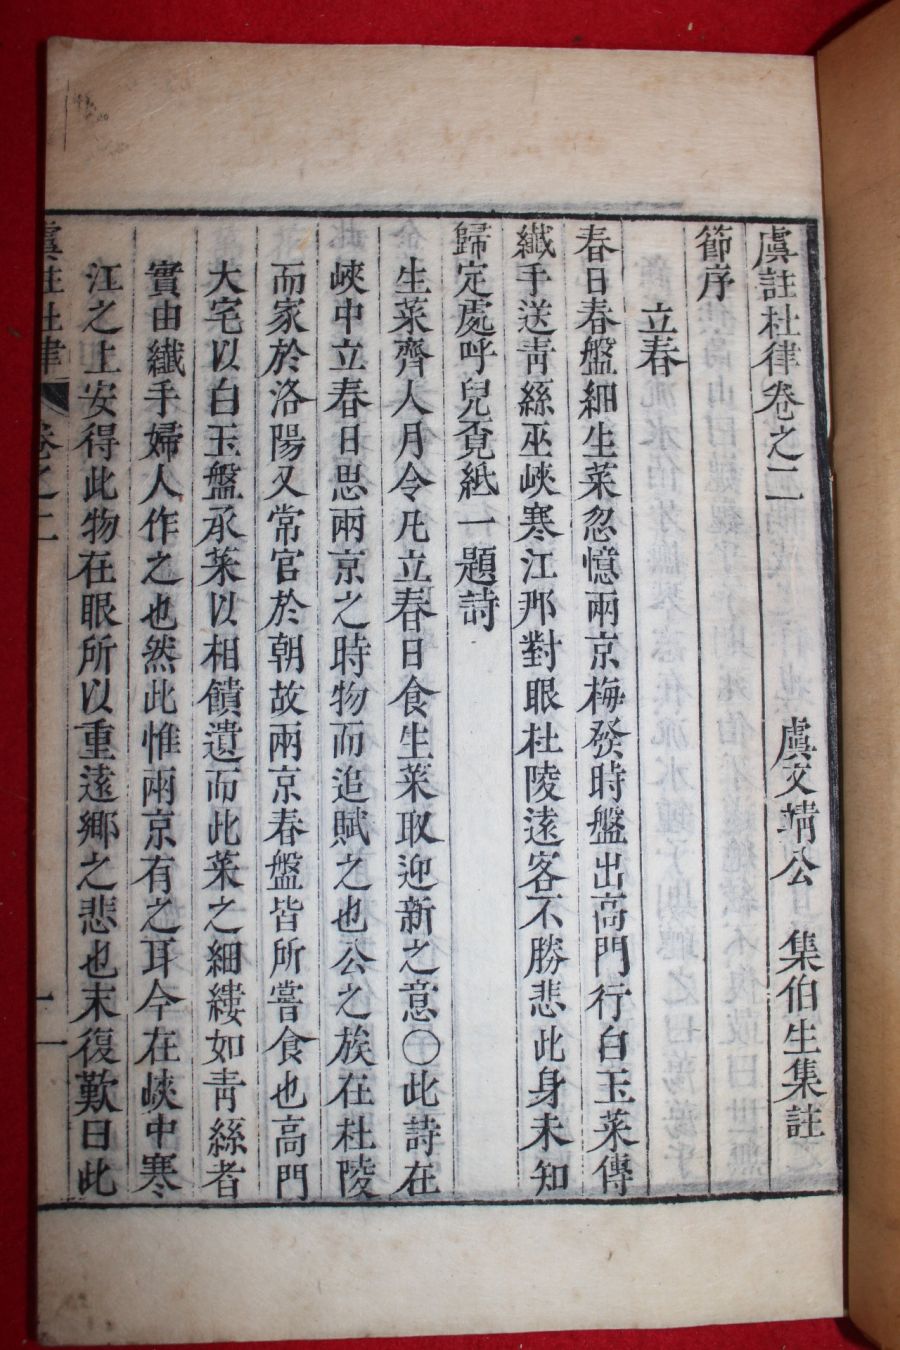 虞註杜律卷之二
虞文靖公 集伯生集註
節序
立春
春日春盤細生菜忽憶兩京梅發時盤出高門行白玉菜傳
纖手送靑絲巫峽寒江那對眼杜陵遠客不勝悲此身未知
歸定處呼兒覔紙一題詩
生菜齊人月令凡立春日食生菜取迎新之意〇此詩在
峽中立春日思兩京之時物而追賦之也公之族在杜陵
而家於洛陽又常官於朝故兩京春盤皆所嘗食也高門
大宅以白玉盤承菜以相饋遺而此菜之細縷如靑絲者
實由纖手婦人作之也然此惟兩京有之耳今在峽中寒
江之上安得此物在眼所以重遠鄉之悲也末復歎曰此
虞註杜律 卷之二 一